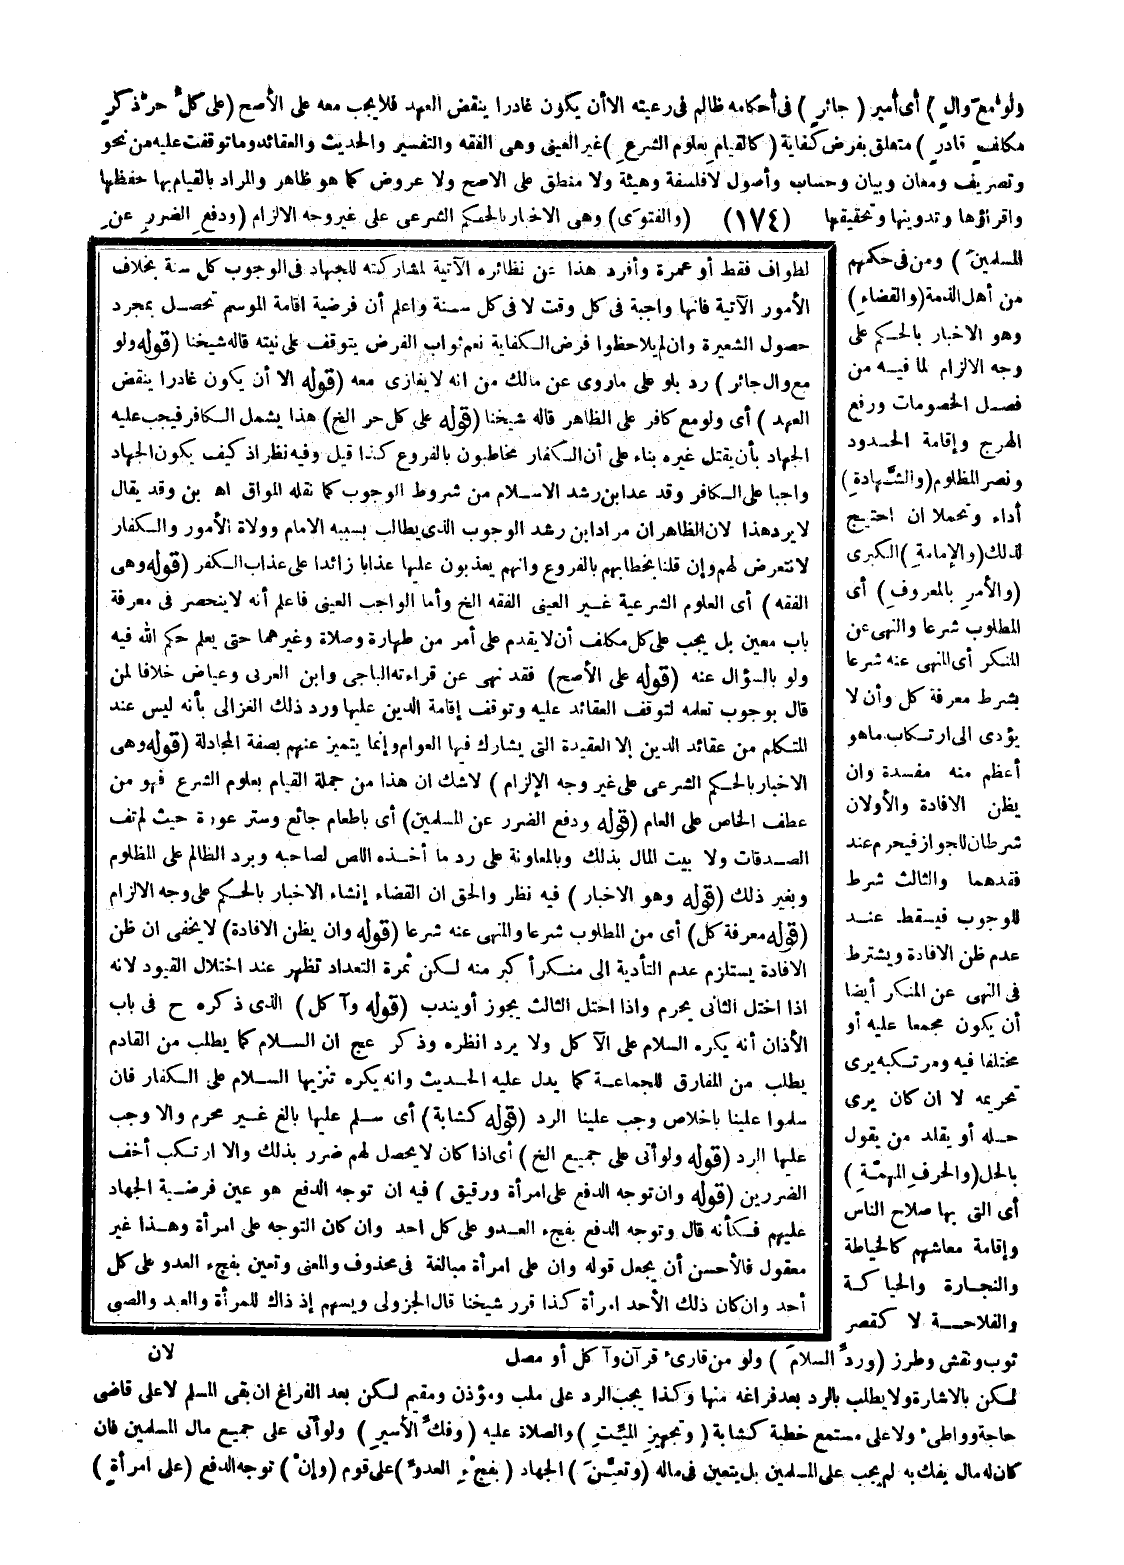 ولو مع وال ) أى أمير ( جائر ) فى أحكامه ظالم فى رعيته الا أن يكون غادرا ينقض العهد فلا يجب معه على الأصح (على كل حر ذكر
مكلف قادر ) متعلق بفرض كفاية ( كالقيام بعلوم الشرع ) غير العينى وهى الفقه والتفسير والحديث والعقائد وما توقفت عليه من نحو
وتصريف ومعان وبيان وحساب وأصول لا فلسفة وهيئة ولا منطق على الاصح ولا عروض كما هو ظاهر والمراد بالقيام بها حفظها
واقراؤها وتدوينها وتحقيقها (١٧٤) (والفتوى) وهى الاخبار بالحكم الشرعى على غير وجه الالزام (ودفع الضرر عن
المسلمين ) ومن فى حكمهم
من أهل الذمة (والقضاء)
وهو الاخبار بالحكم على
وجه الالزام لما فيه من
فصل الخصومات ورفع
الهرج وإقامة الحدود
ونصر المظلوم (والشَّهادة)
أداء وتحملا ان احتيج
لذلك (والإمامة) الكبرى
(والأمر بالمعروف) أى
المطلوب شرعا والنهى عن
المنكر أى المنهى عنه شرعا
بشرط معرفة كل وأن لا
يؤدى الى ارتكاب ما هو
أعظم منه مفسدة وان
يظن الافادة والأولان
شرطان للجواز فيحرم عند
فقدهما والثالث شرط
للوجوب فيسقط عند
عدم ظن الافادة ويشترط
فى النهى عن المنكر أيضا
أن يكون مجمعا عليه أو
مختلفا فيه ومرتكبه يرى
تحريمه لا ان كان يرى
حله أو يقلد من يقول
بالحل (والحرف المهمَّة )
أى التى بها صلاح الناس
وإقامة معاشهم كالخياطة
والنجارة والحياكة
والفلاحة لا كقصر
لطواف فقط أو عمرة وأفرد هذا عن نظائره الآتية لمشاركته للجهاد فى الوجوب كل سنة بخلاف
الأمور الآتية فانها واجبة فى كل وقت لا فى كل سنة واعلم أن فرضية اقامة الموسم تحصل بمجرد
حصول الشعيرة وان لم يلاحظوا فرض الكفاية نعم ثواب الفرض يتوقف على نيته قاله شيخنا (قوله ولو
مع وال جائر ) رد بلو على ما روى عن مالك من انه لا يغازى معه (قوله الا أن يكون غادرا ينقض
العهد ) أى ولو مع كافر على الظاهر قاله شيخنا (قوله على كل حر الخ) هذا يشمل الكافر فيجب عليه
الجهاد بأن يقتل غيره بناء على أن الكفار مخاطبون بالفروع كذا قيل وفيه نظر اذ كيف يكون الجهاد
واجبا على الكافر وقد عد ابن رشد الاسلام من شروط الوجوب كما نقله المواق اه بن وقد يقال
لا يرد هذا لان الظاهر ان مراد ابن رشد الوجوب الذى يطالب بسببه الامام وولاة الأمور والكفار
لا نتعرض لهم وإن قلنا بخطابهم بالفروع وانهم يعذبون عليها عذابا زائدا على عذاب الكفر (قوله وهى
الفقه ) أى العلوم الشرعية غير العينى الفقه الخ وأما الواجب العينى فاعلم أنه لا ينحصر فى معرفة
باب معين بل يجب على كل مكلف أن لا يقدم على أمر من طهارة وصلاة وغيرهما حتى يعلم حكم الله فيه
ولو بالسؤال عنه (قوله على الأصح) فقد نهى عن قراءته الباجى وابن العربى وعياض خلافا لمن
قال بوجوب تعلمه لتوقف العقائد عليه وتوقف إقامة الدين عليها ورد ذلك الغزالى بأنه ليس عند
المتكلم من عقائد الدين إلا العقيدة التى يشارك فيها العوام وإنما يتميز عنهم بصفة المجادلة (قوله وهى
الاخبار بالحكم الشرعى على غير وجه الإلزام ) لا شك ان هذا من جملة القيام بعلوم الشرع فهو من
عطف الخاص على العام (قوله ودفع الضرر عن المسلمين) أى باطعام جائع وستر عورة حيث لم تف
الصدقات ولا بيت المال بذلك وبالمعاونة على رد ما أخذه اللص لصاحبه وبرد الظالم على المظلوم
وبغير ذلك (قوله وهو الاخبار ) فيه نظر والحق ان القضاء إنشاء الاخبار بالحكم على وجه الالزام
(قوله معرفة كل) أى من المطلوب شرعا والمنهى عنه شرعا (قوله وان يظن الافادة) لا يخفى ان ظن
الافادة يستلزم عدم التأدية الى منكر أكبر منه لكن ثمرة التعداد تظهر عند اختلال القيود لانه
اذا اختل الثانى يحرم واذا اختل الثالث يجوز أو يندب (قوله وآكل) الذى ذكره ح فى باب
الأذان أنه يكره السلام على الآكل ولا يرد انظره وذكر عج ان السلام كما يطلب من القادم
يطلب من المفارق للجماعة كما يدل عليه الحديث وانه يكره تنزيها السلام على الكفار فان
سلموا علينا باخلاص وجب علينا الرد (قوله كشابة) أى سلم عليها بالغ غير محرم والا وجب
عليها الرد (قوله ولو أتى على جميع الخ) أى اذا كان لا يحصل لهم ضرر بذلك والا ارتكب أخف
الضررين (قوله وان توجه الدفع على امرأة ورقيق ) فيه ان توجه الدفع هو عين فرضية الجهاد
عليهم فكأنه قال وتوجه الدفع بفجء العدو على كل احد وان كان التوجه على امرأة وهذا غير
معقول فالأحسن أن يجعل قوله وان على امرأة مبالغة فى محذوف والمعنى وتعين بفجء العدو على كل
أحد وان كان ذلك الأحد امرأة كذا قرر شيخنا قال الجزولى ويسهم إذ ذاك للمرأة والعبد والصبى
لان
ثوب ونقش وطرز (وردُّ السلام ) ولو من قارئ قرآن وآكل أو مصل
لكن بالاشارة ولا يطلب بالرد بعد فراغه منها وكذا يجب الرد على ملب ومؤذن ومقيم لكن بعد الفراغ ان بقى المسلم لا على قاضى
حاجة وواطئ ولا على مستمع خطبة كشابة ( وتجهيز الميِّت ) والصلاة عليه ( وفكُّ الأسير ) ولو أتى على جميع مال المسلمين فان
كان له مال يفك به لم يجب على المسلمين بل يتعين فى ماله (وتعيَّن ) الجهاد ( بفجْءِ العدوّ ) على قوم (وإنْ ) توجه الدفع (على امرأة )